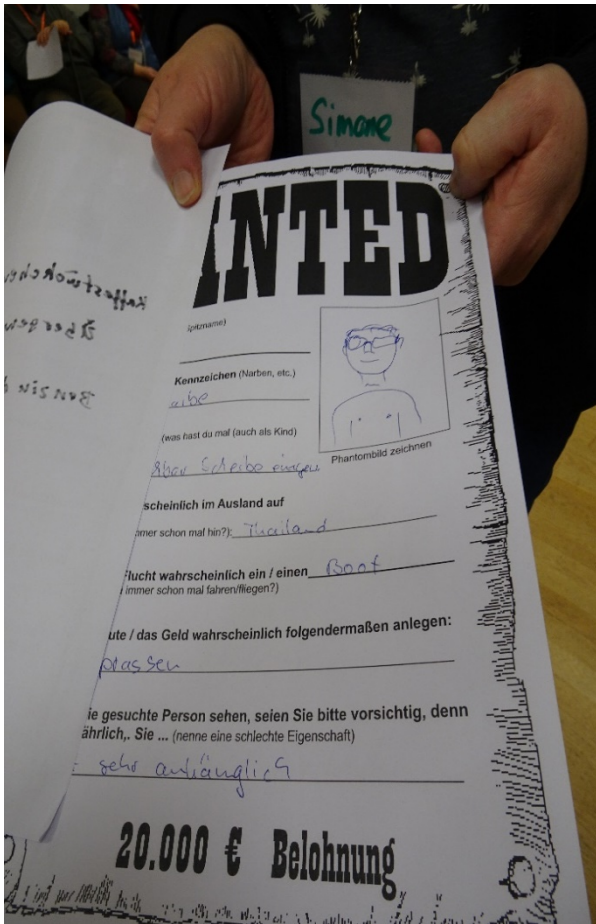 Simone
INTED
pitzname)
Kennzeichen (Narben, etc.)
(was hast du mal (auch als Kind)
Phantombild zeichnen
Scheibe
scheinlich im Ausland auf
mmer schon mal hin?): Thailand
Flucht wahrscheinlich ein / einen Boot
immer schon mal fahren/fliegen?)
ute / das Geld wahrscheinlich folgendermaßen anlegen:
prassen
ie gesuchte Person sehen, seien Sie bitte vorsichtig, denn
ährlich,. Sie ... (nenne eine schlechte Eigenschaft)
sehr anhänglich
20.000 € Belohnung